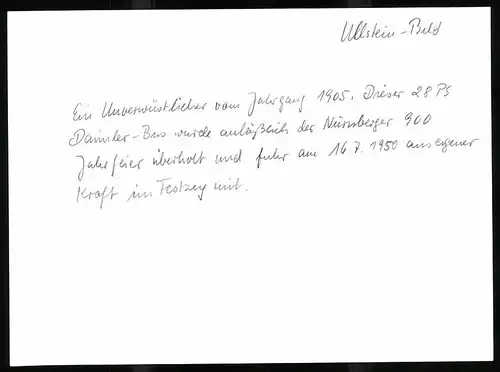 Ullstein-Bild
Ein Unverwüstlicher vom Jahrgang 1905. Dieser 28 PS
Daimler-Bus wurde anläßlich der Nürnberger 900
Jahrfeier überholt und fuhr am 16.7.1950 aus eigener
Kraft im Festzug mit.